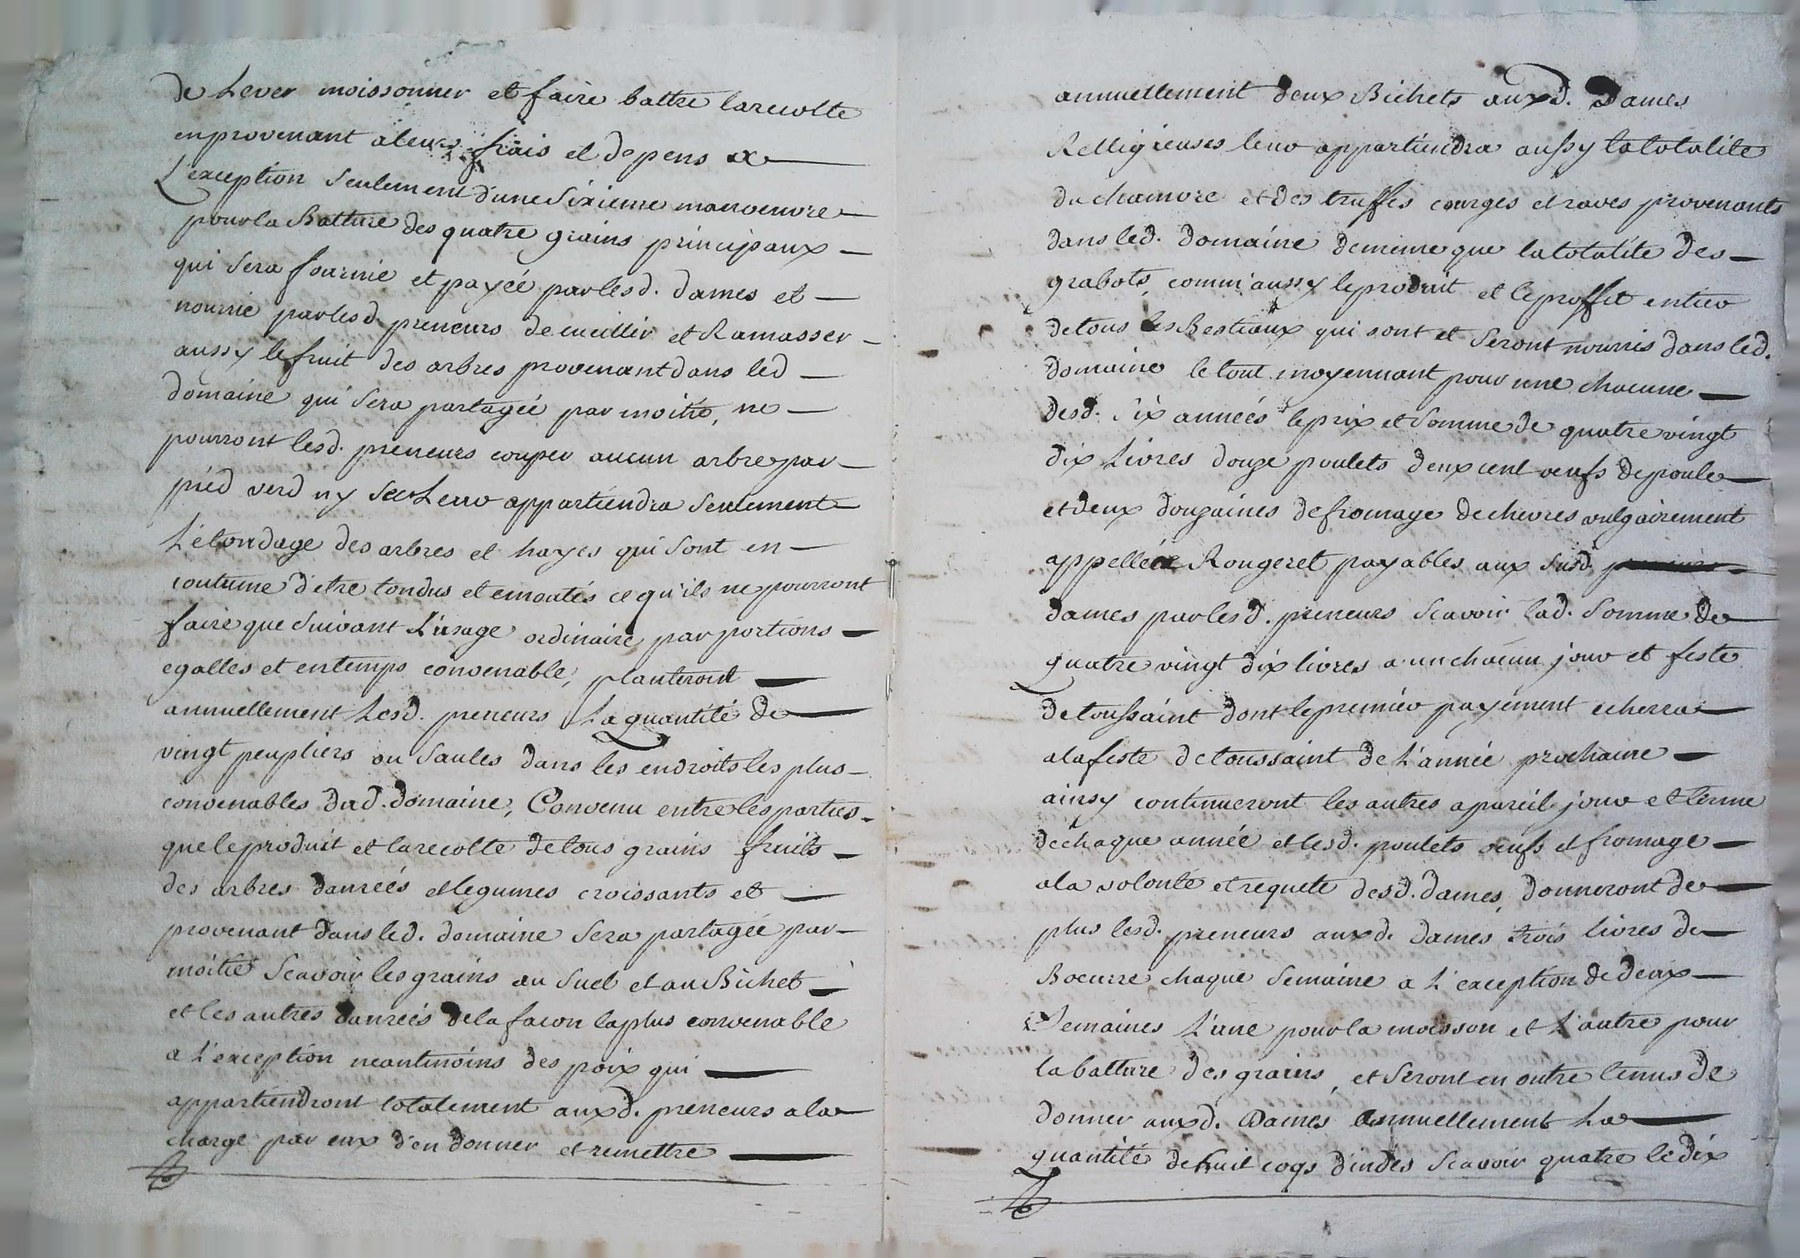 de Lever moissonner et faire battre la recolte
en provenant a leurs frais et depens a
L'exception seulement d'une sixieme manoeuvre
pour la Batture des quatre grains principaux
qui sera fournie et payée par lesd. dames et
nourrie par lesd. preneurs de cueillir et Ramasser
aussy le fruit des arbres provenant dans led
domaine qui sera partagée par moitié, ne
pourront lesd. preneurs couper aucun arbre par
pied verd ny sec Leur appartiendra seulement
L'étondage des arbres et hayes qui sont en
coutume d'etre tondus et emontés ce qu'ils ne pourront
faire que suivant L'usage ordinaire par portions
egalles et en temps convenable, planteront
annuellement Lesd. preneurs La quantité de
vingt peupliers ou saules dans les endroits les plus
convenables dud. domaine, Convenu entre les parties
que le produit et la recolte de tous grains fruits
des arbres danreés et legumes croissants et
provenant dans led. domaine sera partagée par
moitié scavoir les grains au suel et au Bichet
et les autres danreés de la facon la plus convenable
a L'exception neantmoins des poix qui
appartiendront totalement auxd. preneurs a la
charge par eux d'en donner et remettre
annuellement deux Bichets auxd. Dames
Relligieuses leur appartiendra aussy la totalité
du chamvre et des truffes courges et raves provenants
dans led. domaine de meme que la totalité des
grabots, comm'aussy le produit et le proffit entier
de tous les Bestiaux qui sont et seront nourris dans led.
domaine le tout moyennant pour une chacune
desd. six anneés le prix et somme de quatre vingt
dix Livres douze poulets deux cent oeufs de poule
et deux douzaines de fromage de chevres vulgairement
appelleé Rougeret payables aux susd.
dames par lesd. preneurs scavoir lad. somme de
quatre vingt dix livres a un chacun jour et feste
de toussaint dont le premier payément echerra
a la feste de toussaint de L'année prochaine
ainsy continueront les autres a pareil jour et terme
de chaque année et lesd. poulets oeufs et fromage
a la volonté et requete desd. dames, donneront de
plus lesd. preneurs auxd. Dames trois livres de
Boeurre chaque semaine a L'exception de deux
semaines L'une pour la moisson et L'autre pour
la batture des grains, et seront en outre tenus de
donner auxd. Dames annuellement La
quantité de huit coqs d'indes scavoir quatre le dix